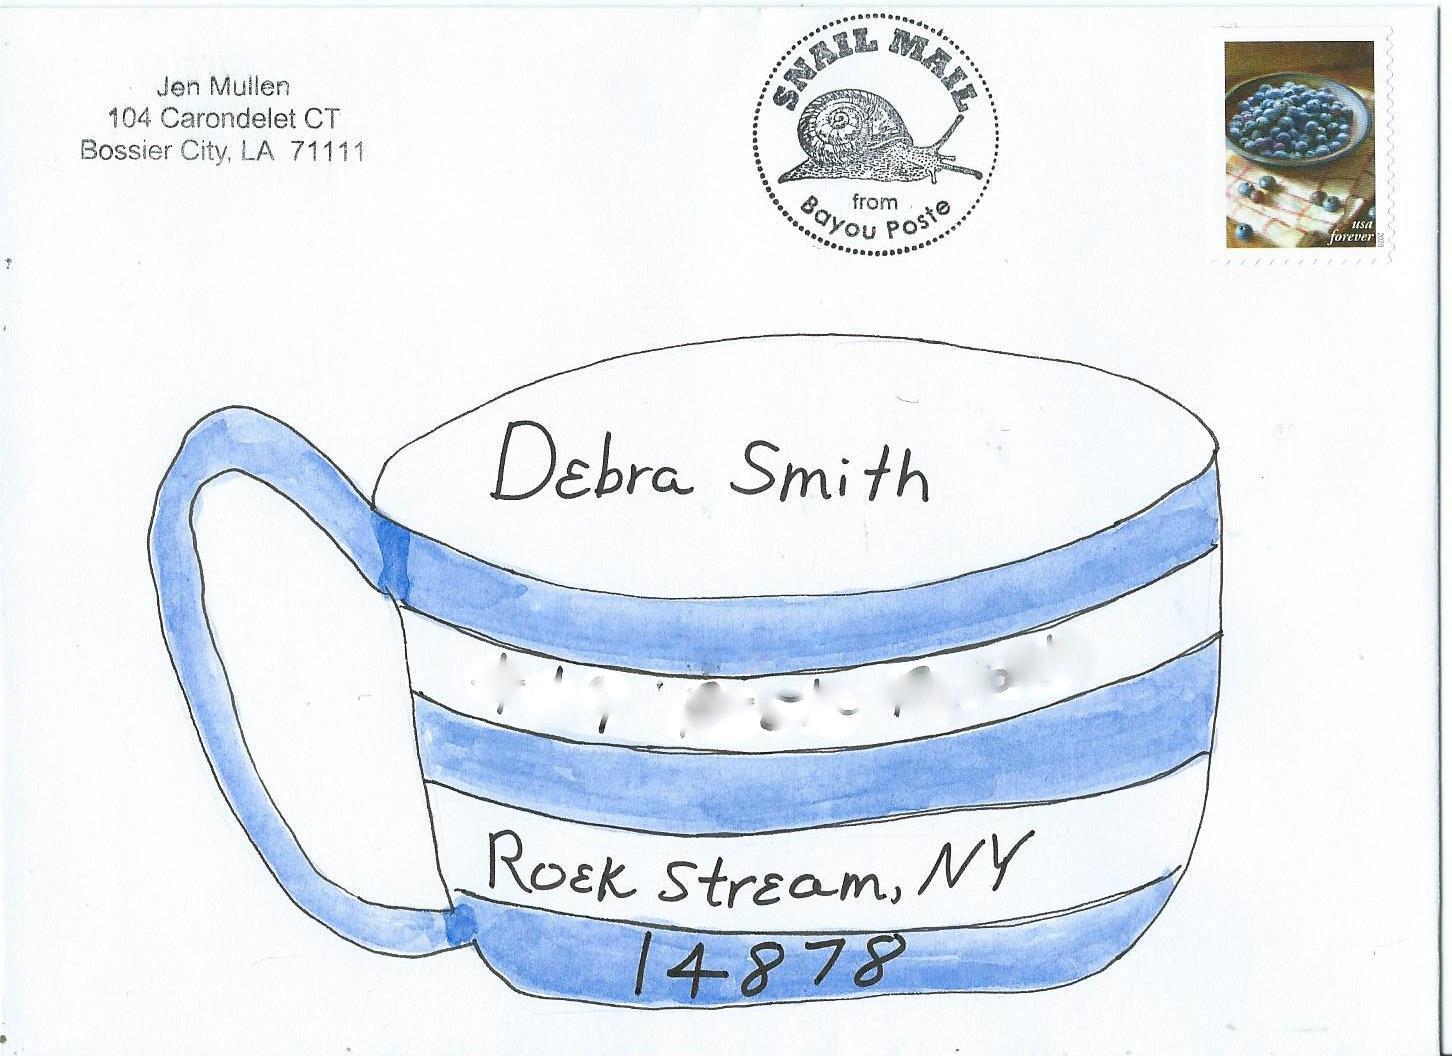 Jen Mullen
104 Carondelet CT
Bossier City, LA 71111
SNAIL MAIL
from
Bayou Poste
usa
forever
2020
Debra Smith
Rock Stream, NY
14878